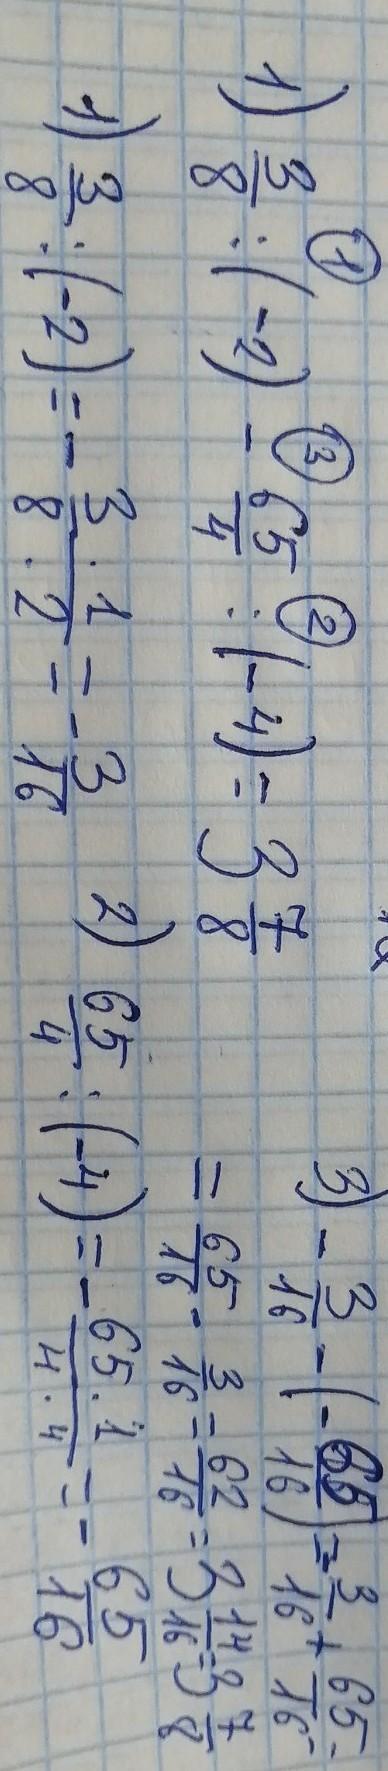 ① ③ ②
1) 3/8 : (-2) - 65/4 : (-4) = 3 7/8
1) 3/8 : (-2) = - 3·1/8·2 = - 3/16
2) 65/4 : (-4) = - 65·1/4·4 = - 65/16
3) - 3/16 - (- 65/16) = - 3/16 + 65/16 =
= 65/16 - 3/16 = 62/16 = 3 14/16 = 3 7/8